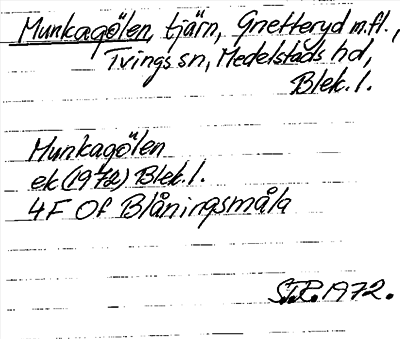 Munkagölen, tjärn, Gnetteryd m.fl.,
Tvings sn, Medelstads hd,
Blek. l.
Munkagölen
ek (1972) Blek. l.
4F 0f Blåningsmåla
S.F.R. 1972.